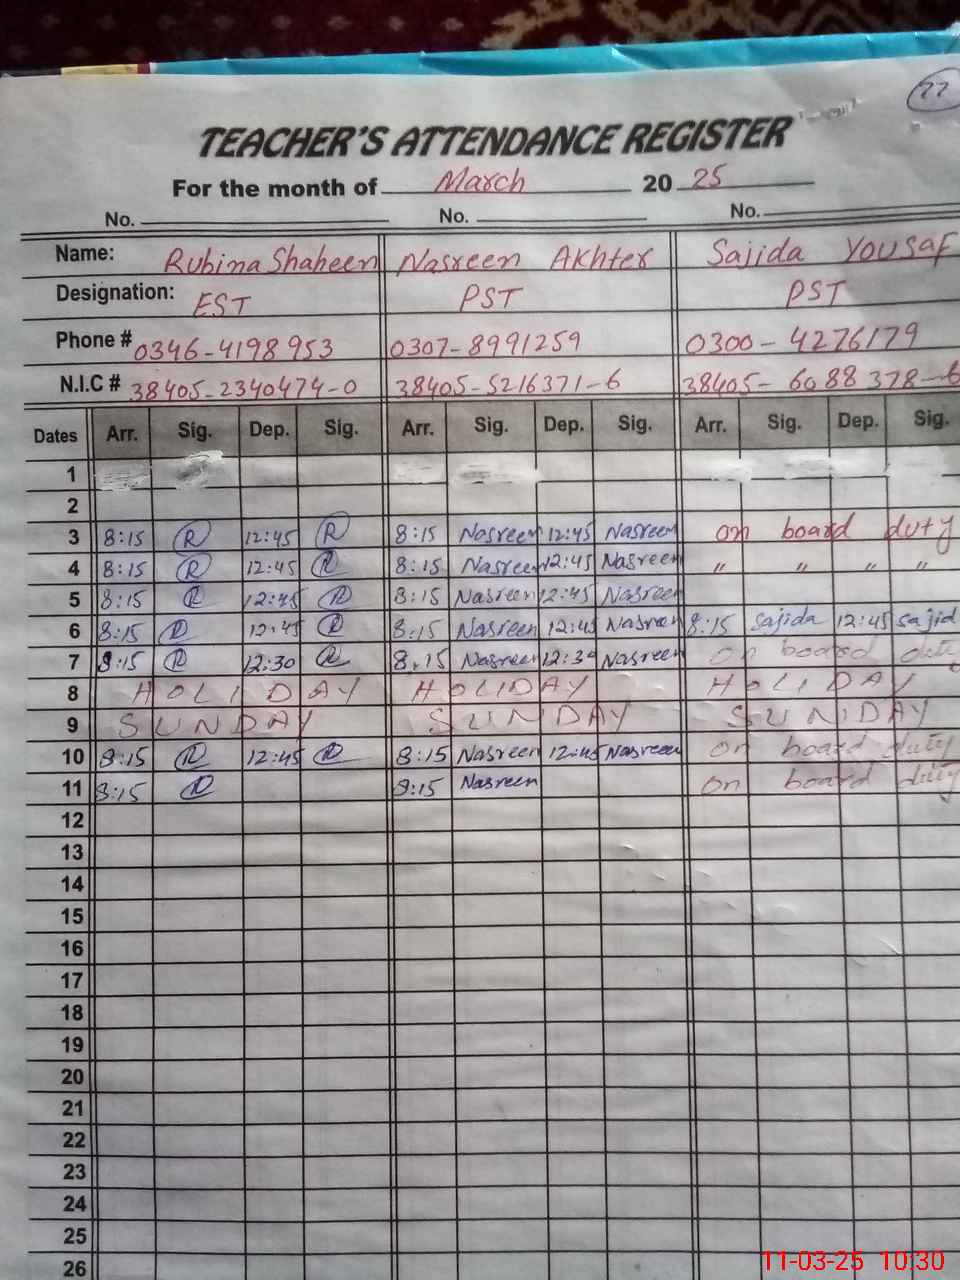 77
TEACHER'S ATTENDANCE REGISTER
For the month of March 2025
No. No. No.
Name: Rubina Shaheen Nasreen Akhter Sajida Yousaf
Designation: EST PST PST
Phone # 0346-4198953 0307-8991259 0300-4276179
N.I.C # 38405-2340474-0 38405-5216371-6 38405-6088378-6
Dates Arr. Sig. Dep. Sig. Arr. Sig. Dep. Sig. Arr. Sig. Dep. Sig.
1
2
3 8:15 R 12:45 R 8:15 Nasreen 12:45 Nasreen on board duty
4 8:15 R 12:45 R 8:15 Nasreen 12:45 Nasreen " " " "
5 8:15 R 12:45 R 8:15 Nasreen 12:45 Nasreen
6 8:15 R 12:45 R 8:15 Nasreen 12:45 Nasreen 8:15 Sajida 12:45 Sajid
7 8:15 R 12:30 R 8:15 Nasreen 12:30 Nasreen on board duty
8 HOLIDAY HOLIDAY HOLIDAY
9 SUNDAY SUNDAY SUNDAY
10 8:15 R 12:45 R 8:15 Nasreen 12:45 Nasreen on board duty
11 8:15 R 8:15 Nasreen on board duty
12
13
14
15
16
17
18
19
20
21
22
23
24
25
26
11-03-25 10:30